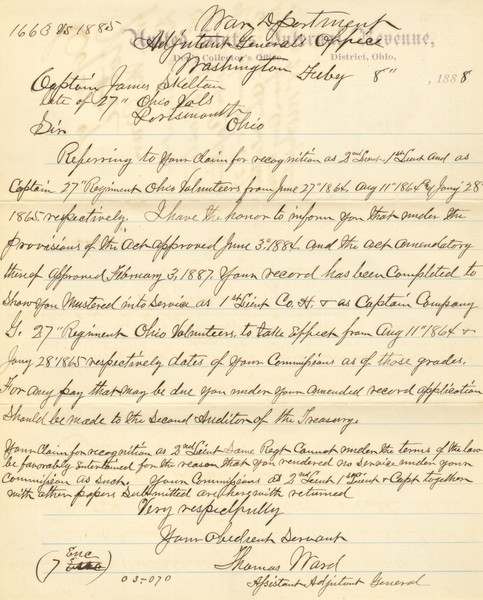 1663 VS 1885
War Department
United States Internal Revenue,
Adjutant General's Office
Deputy Collector's Office, District, Ohio,
Washington Feby 8", 1888
Captain James Skelton
late of 27" Ohio Vols
Portsmouth
Ohio
Sir
Referring to your claim for recognition as 2nd Lieut. 1st Lieut and as
Captain 27" Regiment Ohio Volunteers from June 27" 1864, Aug 11" 1864 & Jany 28"
1865, respectively. I have the honor to inform you that under the
provisions of the Act approved June 3d 1884 and the act amendatory
thereof approved February 3, 1887. Your record has been completed to
show you Mustered into service as 1st Lieut Co. H. & as Captain Company
G. 27" Regiment Ohio Volunteers, to take effect from Aug 11" 1864 &
Jany 28" 1865 respectively dates of your Commissions as of those grades.
For any pay that may be due you under your amended record application
should be made to the Second Auditor of the Treasury.
Your claim for recognition as 2nd Lieut same Regt cannot under the terms of the law
be favorably entertained for the reason that you rendered no service under your
Commission as such. Your Commissions as 2nd Lieut 1st Lieut & Capt together
with other papers submitted are herewith returned
Very respectfully
Your obedient Servant
Thomas Ward
Assistant Adjutant General
(7 Enc)
03-070